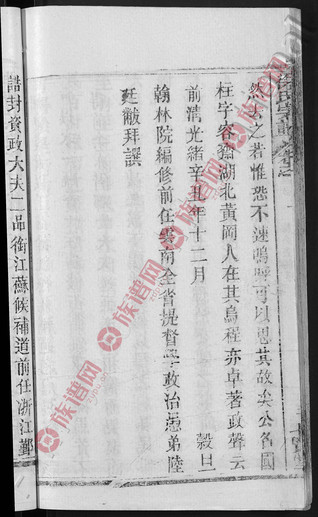 然去之若惟恐不速嗚呼可以思其故矣公名國
柱字容齋湖北黃岡人在其烏程亦卓著政聲云
前清光緒辛丑年十二月 穀旦
翰林院編修前任雲南全省提督學政治愚弟陸
廷黻拜譔
誥封資政大夫二品銜江蘇候補道前任浙江鄞
族谱网
族谱网
族谱网